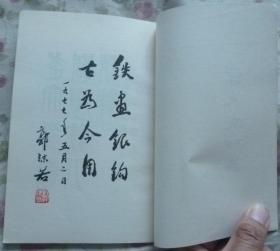 鉄画银钩
古为今用
一九七七年五月二日
郭沫若